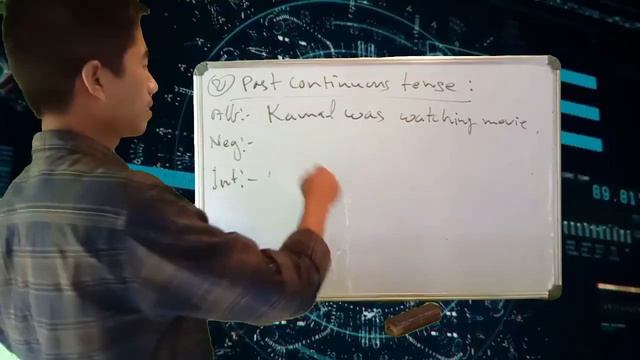 (2) Past continuous tense :
Aff:- Kamal was watching movie.
Neg:-
Int:-
89.81